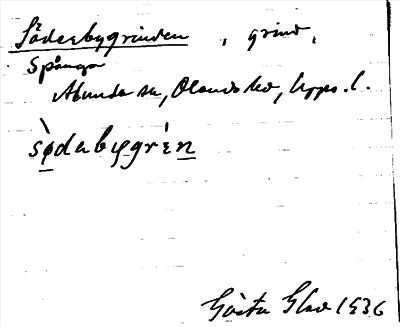 Söderbygrinden , grind,
Spånga
Åkunda sn, Olands hd, Upps. l.
sø̀dabygrὲn
Gösta Glad 1936